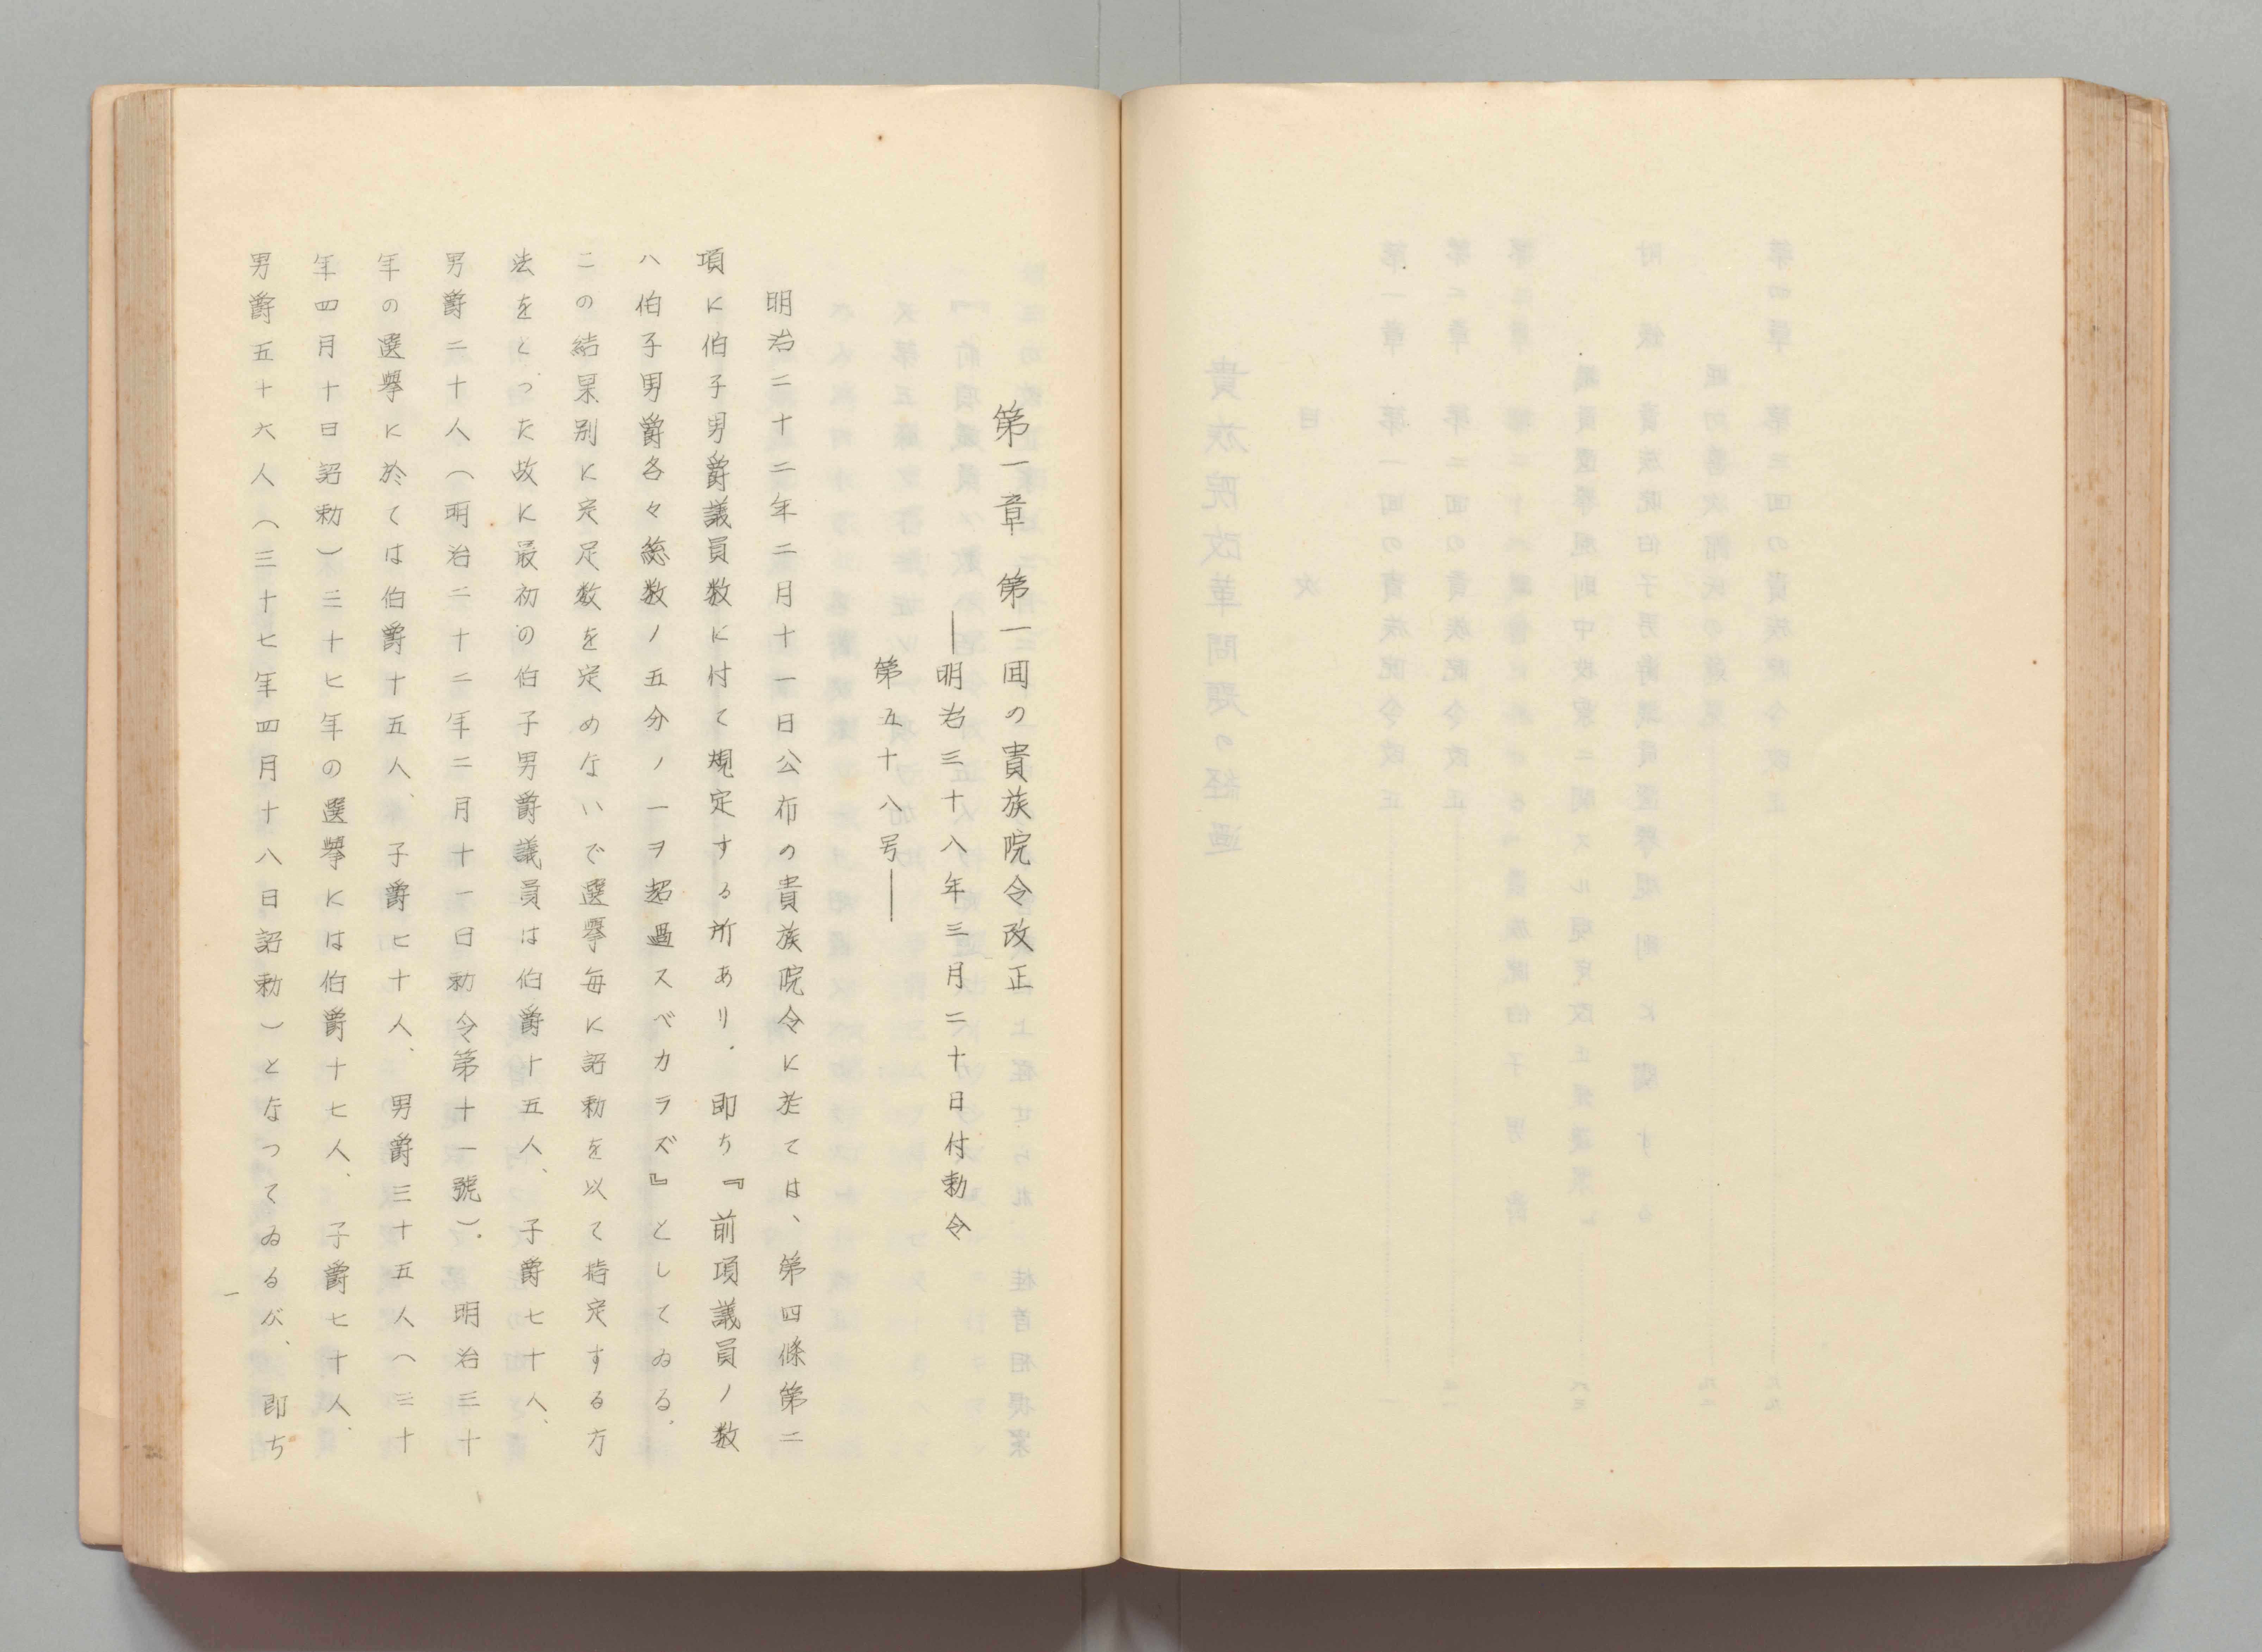 第一章　第一囬の貴族院令改正
―明治三十八年三月二十日付勅令
第五十八号―
明治二十二年二月十一日公布の貴族院令に於ては、第四條第二
項に伯子男爵議員数に付て規定する所あり．即ち『前項議員ノ数
ハ伯子男爵各々総数ノ五分ノ一ヲ超過スベカラズ』としてゐる．
この結果別に定足数を定めないで選擧毎に詔勅を以て指定する方
法をとった故に最初の伯子男爵議員は伯爵十五人、子爵七十人、
男爵二十人（明治二十二年二月十一日勅令第十一號）．明治三十
年の選擧に於ては伯爵十五人、子爵七十人、男爵三十五人（三十
年四月十日詔勅）三十七年の選擧には伯爵十七人、子爵七十人、
男爵五十六人（三十七年四月十八日詔勅）となってゐるが、即ち
一